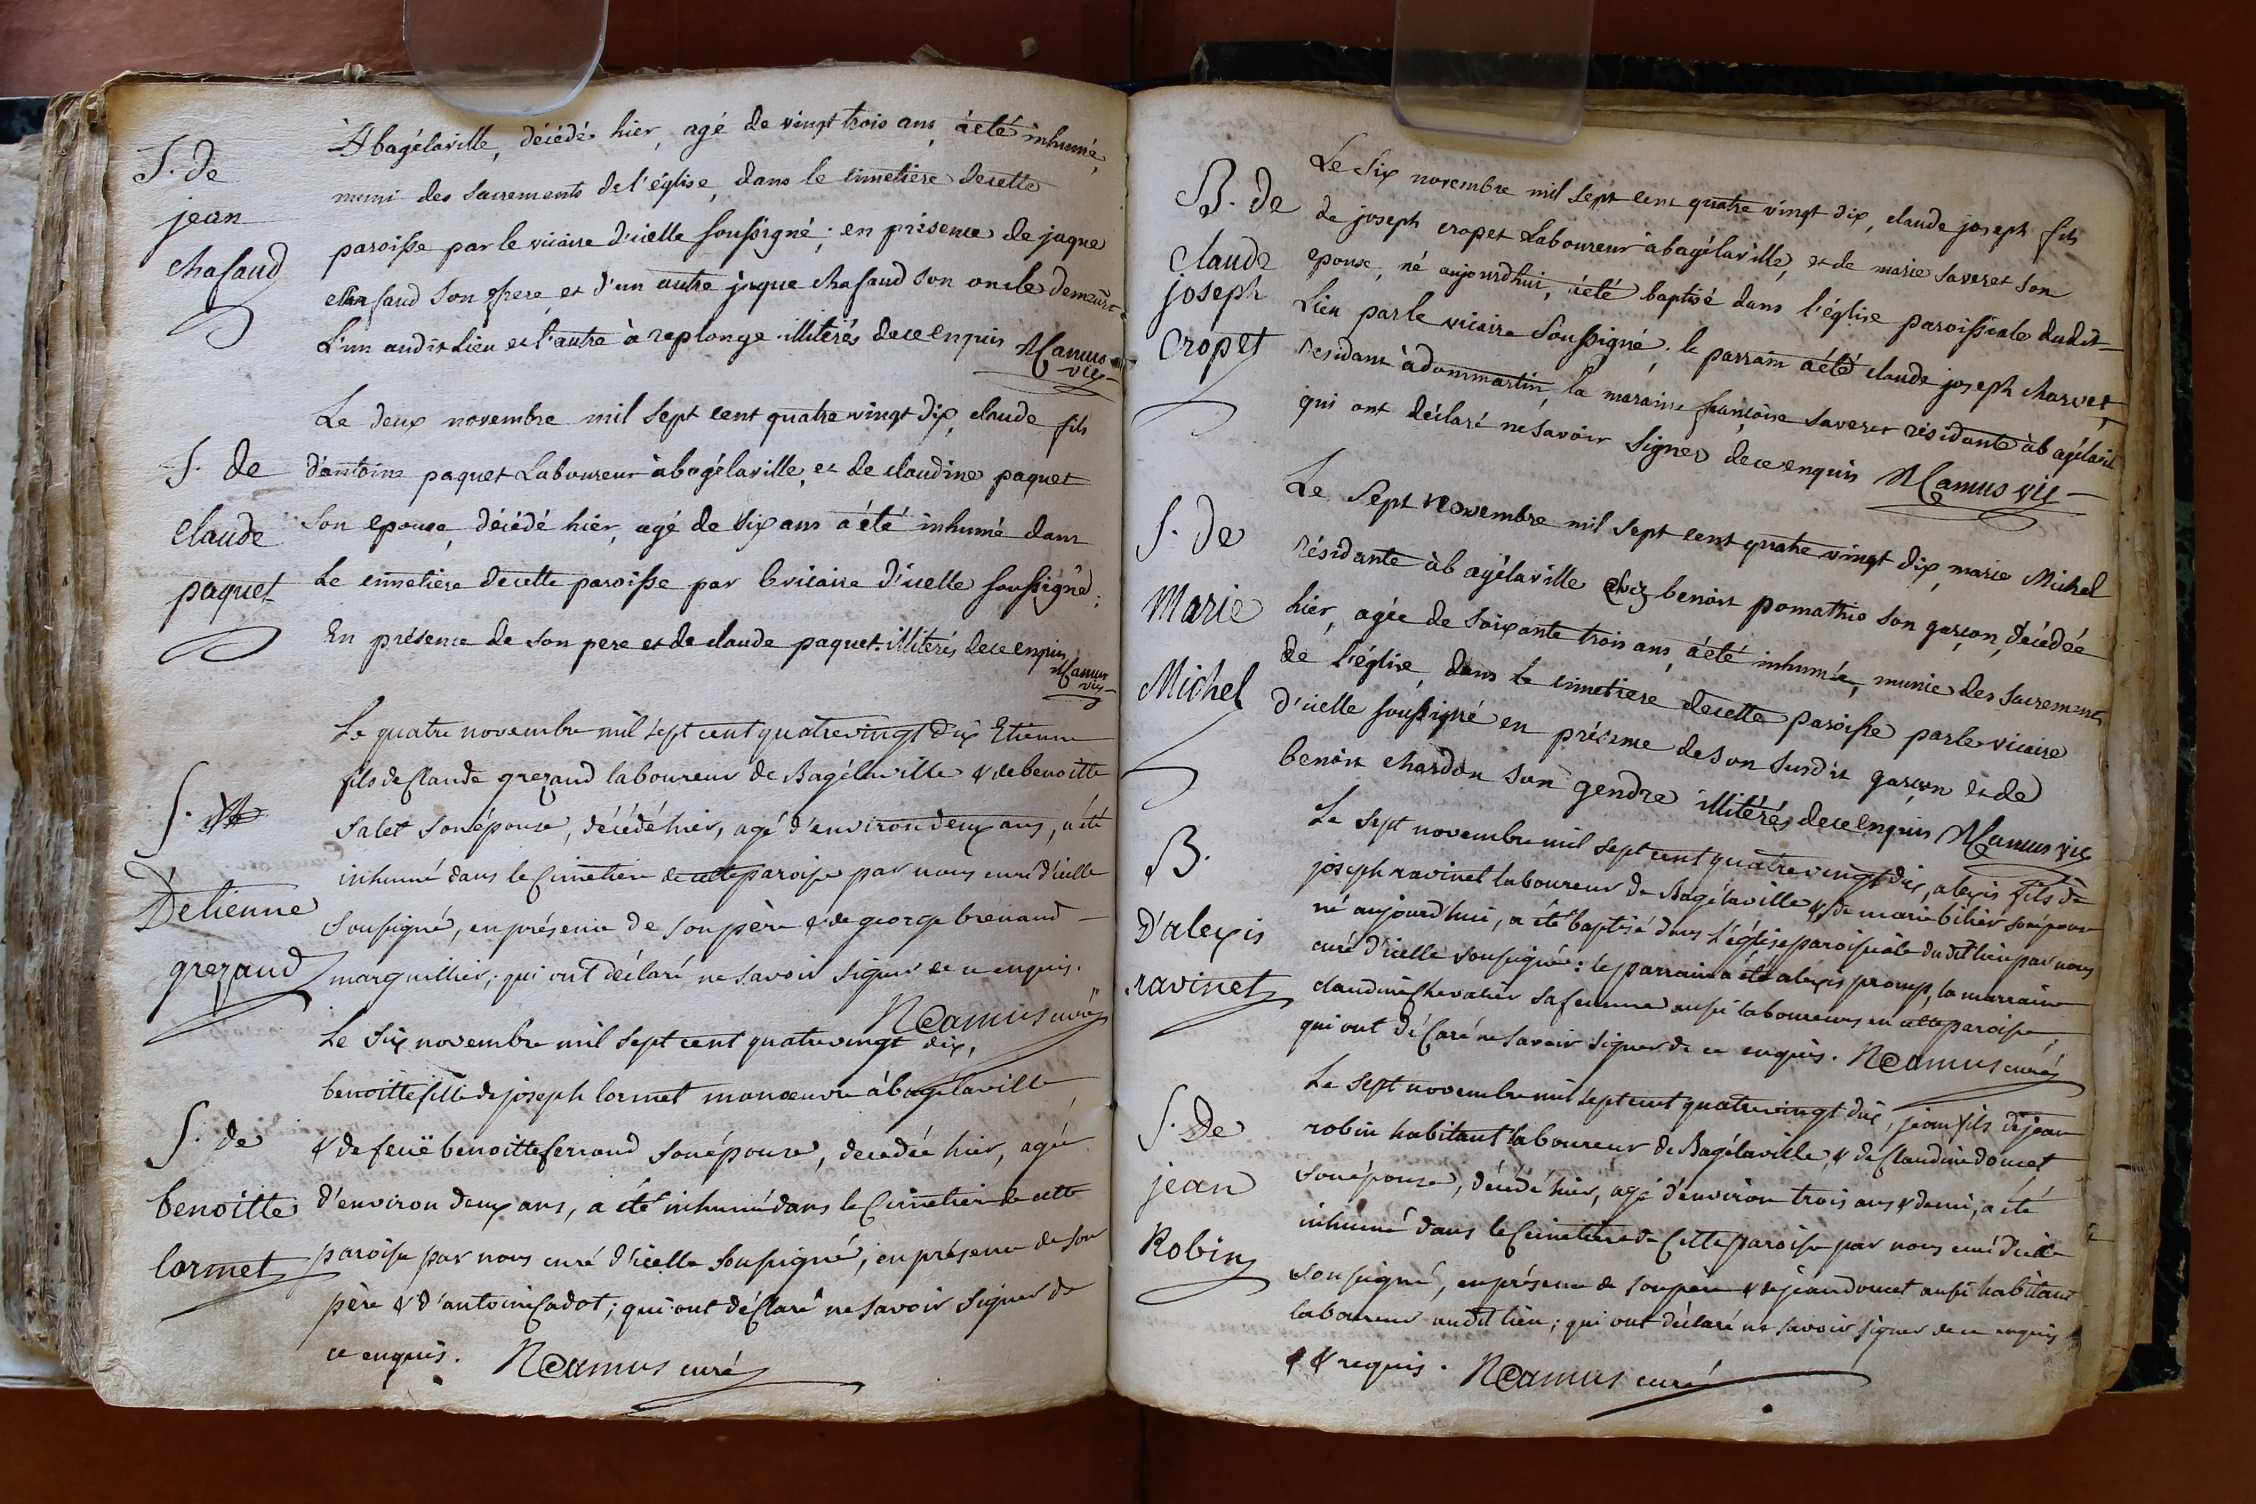 S. de
jean
chafaud
A bagélaville, décédé hier, agé de vingt trois ans, a été inhumé,
muni des sacrements de l'église, dans le cimetiere decette
paroisse par le vicaire d'icelle soussigné; en présence de jaque
chafaud son frere, et d'un autre jaque chafaud son oncle demeurt
L'un audit Lieu et l'autre à replonge illiterés dece enquis NCamus
vic
S. de
Claude
paquet
Le deux novembre mil sept cent quatre vingt dix, claude fils
d'antoine paquet Laboureur à bagélaville, et de claudine paquet
son epouse, décédé hier, agé de six ans a été inhumé dans
Le cimetiere decette paroisse par le vicaire d'icelle soussigné;
En présence de son pere et de claude paquet. illiterés dece enquis
NCamus
vic
S.
D'etienne
grezaud
Le quatre novembre mil sept cent quatrevingt dix Etienne
fils de Claude grezaud laboureur de Bagélaville & de benoitte
salet son épouse, décédé hier, agé d'environ deux ans, a été
inhumé dans le Cimetiere de cette paroisse par nous curé d'icelle
soussigné, en présence de son père & de george brenaud
marguillier; qui ont déclaré ne savoir signer de ce enquis.
NCamus curé
S. de
benoitte
lormet
Le six novembre mil sept cent quatrevingt dix,
benoitte fille de joseph lormet manœuvre à bagélaville
& de feuë benoitte ferrand son épouse, decedée hier, agée
d'environ deux ans, a été inhumé dans le Cimetiere de cette
paroisse par nous curé d'icelle soussigné, en présence de son
père & d'antoine Cadot; qui ont déclaré ne savoir signer de
ce enquis. NCamus curé
B. de
Claude
joseph
Cropet
Le six novembre mil sept cent quatre vingt dix, claude joseph fils
de joseph cropet Laboureur à bagélaville, et de marie saveret son
epouse, né aujourdhui, a été baptisé dans l'église paroissiale dudit
Lieu par le vicaire soussigné. le parrain a été claude joseph charvet,
residant à dommartin, la maraine françoise saveret résidante à bagélavill
qui ont déclaré ne savoir signer dece enquis NCamus vic
S. de
Marie
Michel
Le sept novembre mil sept cent quatre vingt dix, marie Michel
résidante à bagélaville chez benoit pomathio son garçon, décédée
hier, agée de soixante trois ans, a été inhumée, munie des sacrements
de l'église, dans le cimetiere decette paroisse par le vicaire
d'icelle soussigné en présence de son susdit garçon et de
benoit chardon son gendre illitérés dece enquis NCamus vic
B.
D'alexis
ravinet
Le sept novembre mil sept cent quatre vingt dix, alexis fils de
joseph ravinet laboureur de Bagélaville & de marie bélier son épouse
né aujourd'hui, a été baptisé dans l'église paroissiale du dit lieu par nous
curé d'icelle soussigné: le parrain a été alexis promp, la marraine
claudine Chevalier sa femme aussi laboureurs en cette paroisse,
qui ont déclaré ne savoir signer de ce enquis. NCamus curé
S. De
jean
Robin
Le sept novembre mil sept cent quatrevingt dix, jean fils de jean
robin habitant laboureur de Bagélaville, & de Claudine doucet
son épouse, décédé hier, agé d'environ trois ans & demi, a été
inhumé dans le Cimetiere de Cette paroisse par nous curé d'icelle
soussigné, en présence de son père & de jean doucet aussi habitant
laboureur audit lieu; qui ont déclaré ne savoir signer de ce enquis
& requis. NCamus curé